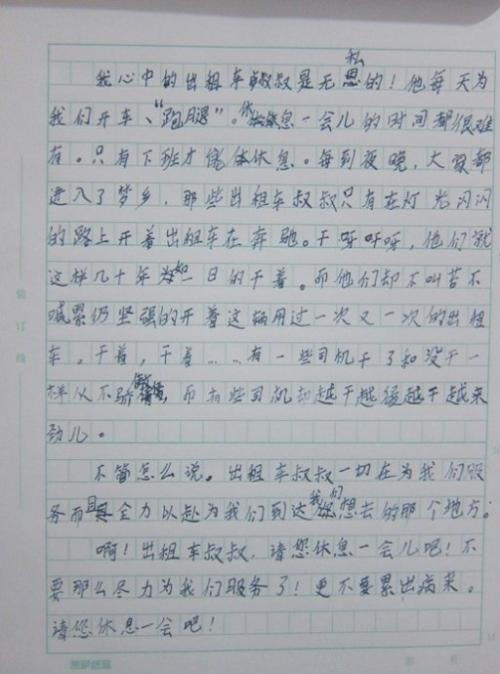 我心中的出租车叔叔是无私的！他每天为
我们开车、“跑腿”。休息一会儿的时间都很难
有。只有下班才能休息。每到夜晚，大家都
进入了梦乡，那些出租车叔叔只有在灯光闪闪
的路上开着出租车在奔驰。干呀呀呀，他们就
这样几十年如一日的干着。而他们却不叫苦不
喊累仍坚强的开着这辆用过一次又一次的出租
车，干着，干着……有一些司机干了和没干一
样从不骄傲，而有些司机却越干越缓越干越来
劲儿。
不简怎么说。出租车叔叔一切在为我们服
务而且全力以赴为我们到达我们想去的那个地方。
啊！出租车叔叔，请您休息一会儿吧！不
要那么尽力为我们服务了！更不要累出病来。
请您休息一会吧！
装订线